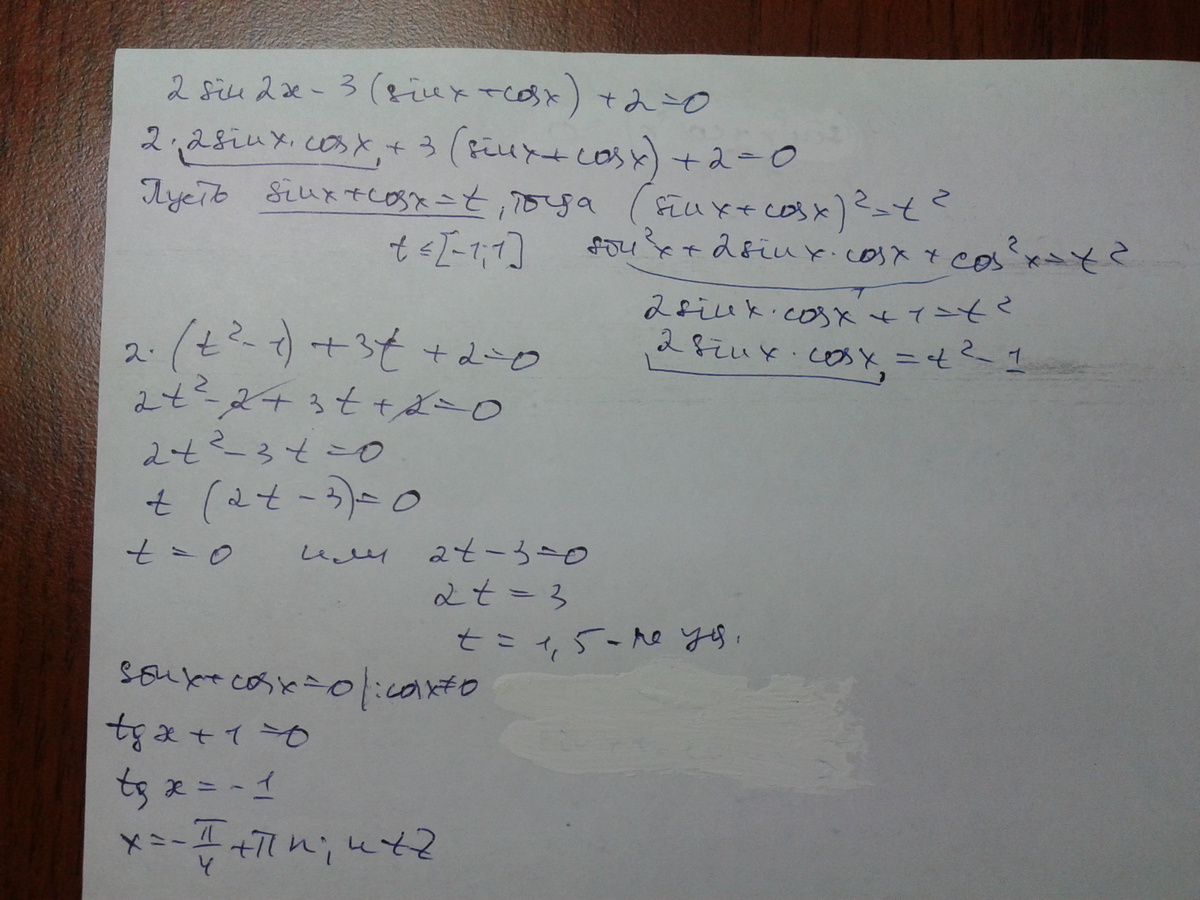 2 sin 2x - 3 (sin x + cos x) + 2 = 0
2 · 2 sin x · cos x + 3 (sin x + cos x) + 2 = 0
Пусть sin x + cos x = t, тогда (sin x + cos x)² = t²
t ∈ [-1; 1] sin²x + 2 sin x · cos x + cos²x = t²
1
2 sin x · cos x + 1 = t²
2 · (t² - 1) + 3t + 2 = 0 2 sin x · cos x = t² - 1
2t² - 2 + 3t + 2 = 0
2t² - 3t = 0
t (2t - 3) = 0
t = 0 или 2t - 3 = 0
2t = 3
t = 1,5 - не уд.
sin x + cos x = 0 |: cos x ≠ 0
tg x + 1 = 0
tg x = -1
x = -π/4 + πn; n ∈ Z